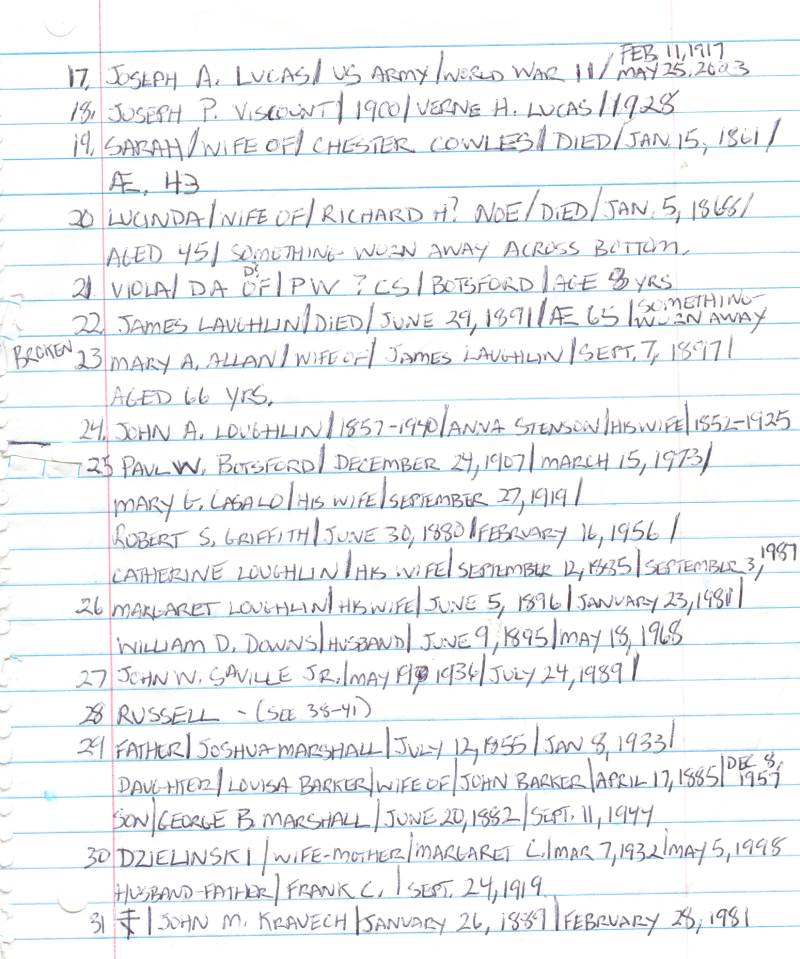 FEB 11, 1917
17, JOSEPH A. LUCAS / US ARMY / WORLD WAR II / MAY 25, 2003
18, JOSEPH P. VISCOUNT / 1900 / VERNE H. LUCAS / 1928
19, SARAH / WIFE OF / CHESTER COWLES / DIED / JAN. 15, 1861 /
Æ, 43
20 LUCINDA / WIFE OF / RICHARD H? NOE / DIED / JAN. 5, 1868 /
AGED 45 / SOMETHING WORN AWAY ACROSS BOTTOM.
21 VIOLA / DA OF / PW ? CS / BOTSFORD / AGE 8 YRS
22, JAMES LAUGHLIN / DIED / JUNE 29, 1891 / Æ 65 / SOMETHING WORN AWAY
BROKEN 23 MARY A. ALLAN / WIFE OF / JAMES LAUGHLIN / SEPT. 7, 1897 /
AGED 66 YRS.
24, JOHN A. LOUGHLIN / 1857-1940 / ANNA STENSON / HIS WIFE / 1852-1925
25 PAUL W. BOTSFORD / DECEMBER 24, 1907 / MARCH 15, 1973 /
MARY G. CASALO / HIS WIFE / SEPTEMBER 27, 1919 /
ROBERT S. GRIFFITH / JUNE 30, 1880 / FEBRUARY 16, 1956 /
CATHERINE LOUGHLIN / HIS WIFE / SEPTEMBER 12, 1885 / SEPTEMBER 3, 1987
26 MARGARET LOUGHLIN / HIS WIFE / JUNE 5, 1896 / JANUARY 23, 1981 /
WILLIAM D. DOWNS / HUSBAND / JUNE 9, 1895 / MAY 18, 1968
27 JOHN W. SAVILLE JR. / MAY 19, 1936 / JULY 24, 1989 /
28 RUSSELL - (SEE 38-41)
29 FATHER / JOSHUA MARSHALL / JULY 12, 1855 / JAN 8, 1933 /
DAUGHTER / LOUISA BARKER / WIFE OF / JOHN BARKER / APRIL 17, 1885 / DEC 8, 1957
SON / GEORGE B. MARSHALL / JUNE 20, 1882 / SEPT. 11, 1944
30 DZIELINSKI / WIFE-MOTHER / MARGARET C. / MAR 7, 1932 / MAY 5, 1998
HUSBAND-FATHER / FRANK C. / SEPT. 24, 1919
31 / JOHN M. KRAVECH / JANUARY 26, 1889 / FEBRUARY 28, 1981